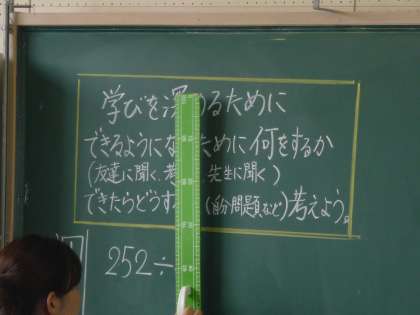 学びを深めるために
できるようになるために何をするか
(友達に聞く 考 先生に聞く)
できたらどうする(自分問題など)考えよう。
252÷